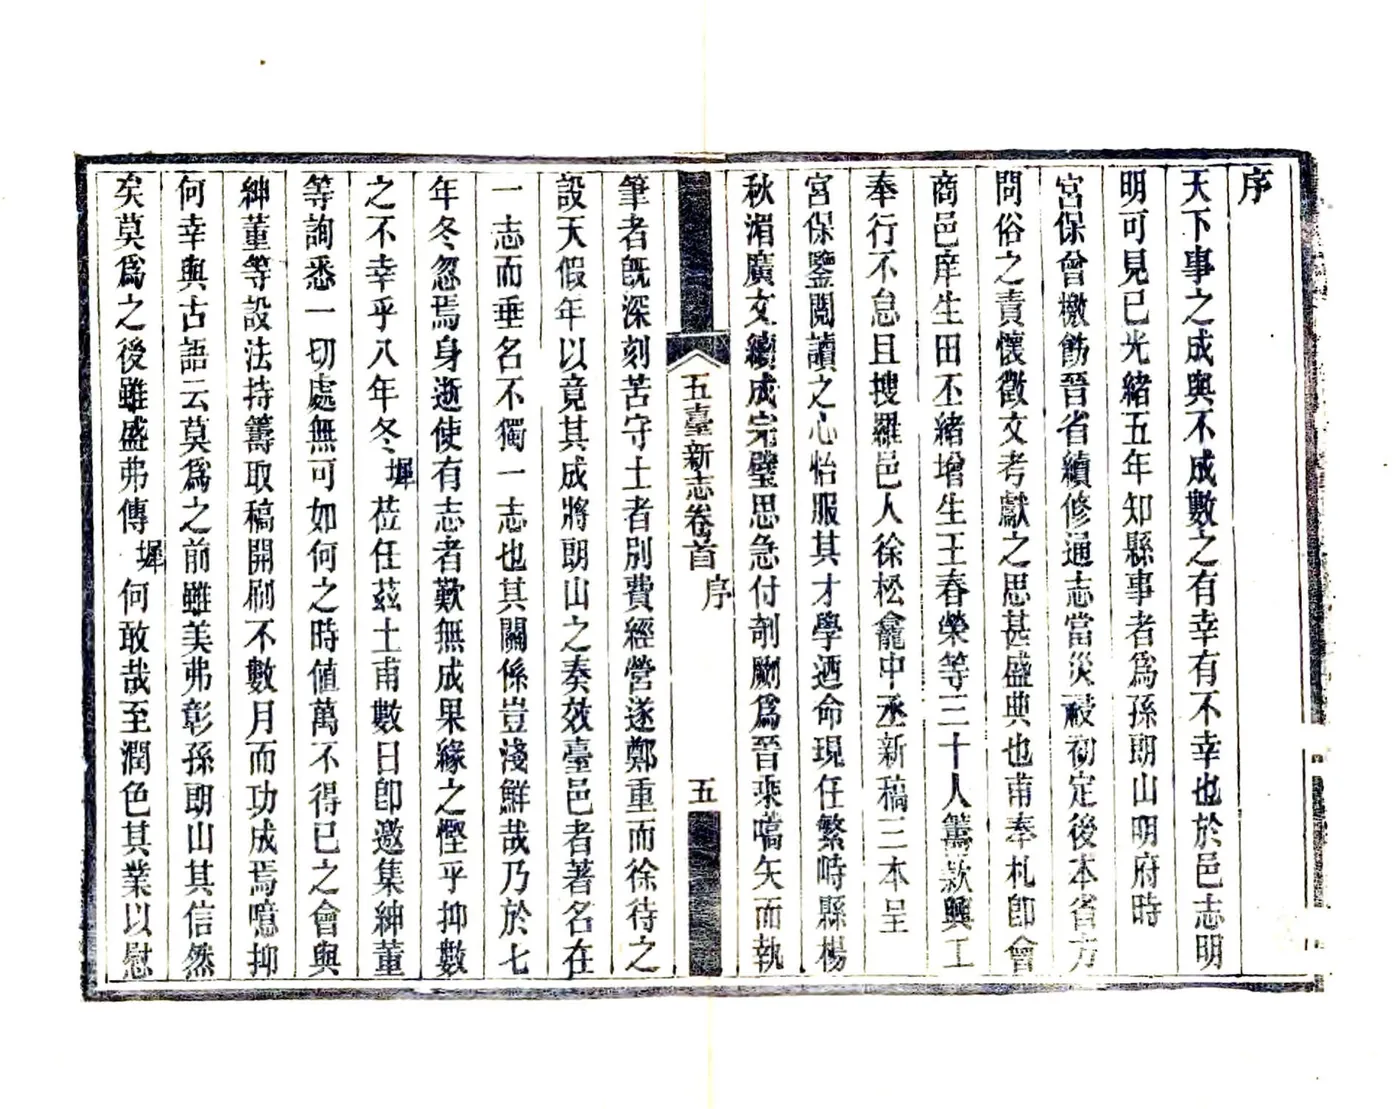 序
天下事之成與不成數之有幸有不幸也於邑志明
明可見已光緒五年知縣事者爲孫朗山明府時
宮保曾檄飭晉省續修通志當災祲初定後本省方
問俗之責懷徵文考獻之思甚盛典也甫奉札卽會
商邑庠生田丕緒增生王春榮等三十人籌款興工
奉行不怠且搜羅邑人徐松龕中丞新稿三本呈
宮保鑒閱讀之心怡服其才學迺命現任繁峙縣楊
秋湄廣文續成完璧思急付剞劂爲晉乘嚆矢而執
五臺新志卷首
序
五
筆者旣深刻苦守土者別費經營遂鄭重而徐待之
設天假年以竟其成將朗山之奏效臺邑者著名在
一志而垂名不獨一志也其關係豈淺鮮哉乃於七
年冬忽焉身逝使有志者歎無成果緣之慳乎抑數
之不幸乎八年冬墀莅任茲土甫數日卽邀集紳董
等詢悉一切處無可如何之時値萬不得已之會與
紳董等設法持籌取稿開刷不數月而功成焉噫抑
何幸與古語云莫爲之前雖美弗彰孫朗山其信然
矣莫爲之後雖盛弗傳墀何敢哉至潤色其業以慰